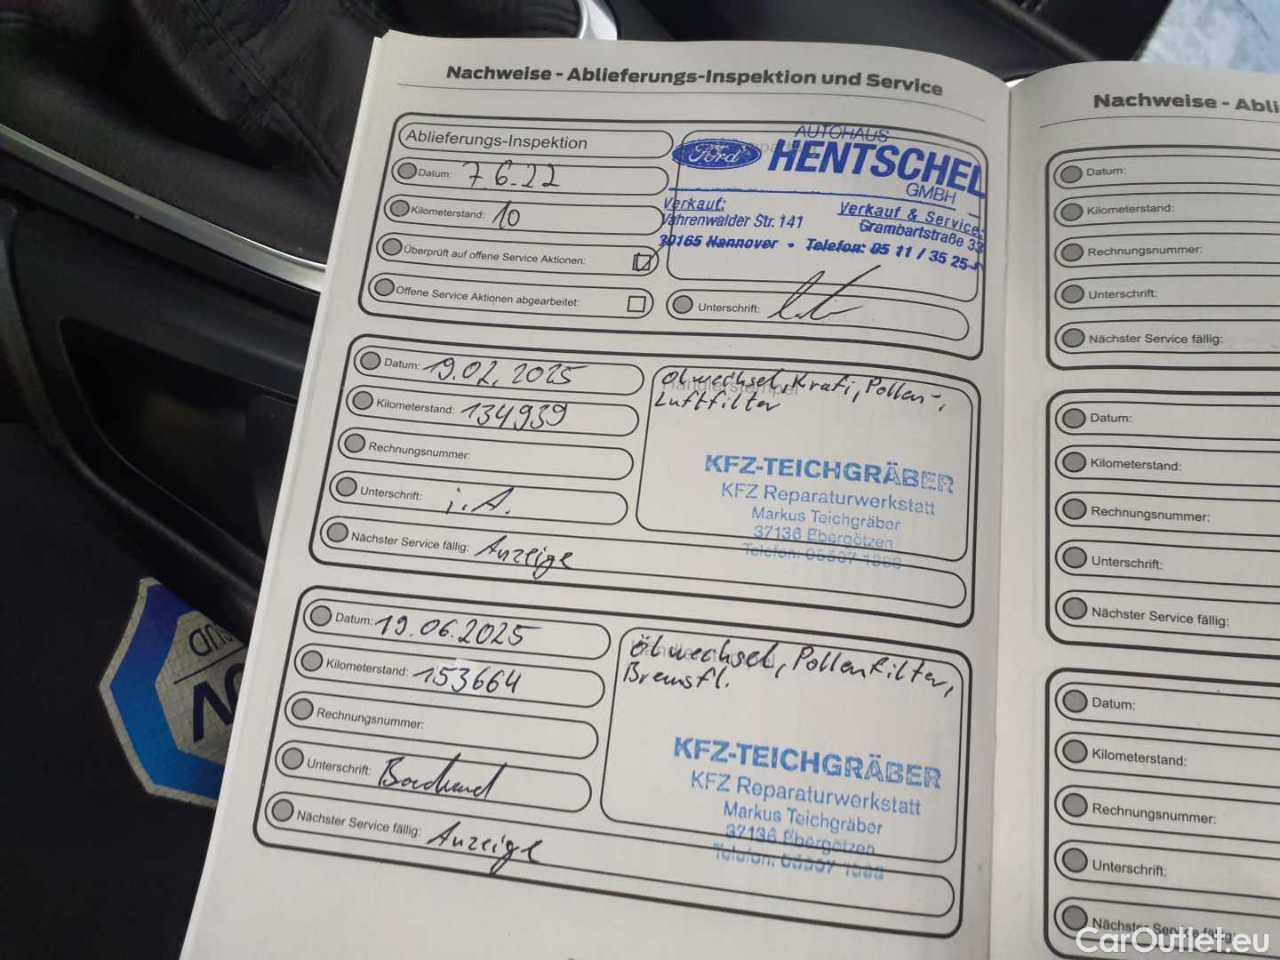 Nachweise - Ablieferungs-Inspektion und Service
Ablieferungs-Inspektion
Datum: 7.6.22
Kilometerstand: 10
Überprüft auf offene Service Aktionen:
Offene Service Aktionen abgearbeitet:
AUTOHAUS
Ford HENTSCHEL
GMBH
Verkauf:
Vahrenwalder Str. 141
30165 Hannover • Telefon: 05 11 / 35 25-
Verkauf & Service:
Grambartstraße
Unterschrift:
Datum: 19.02.2025
Kilometerstand: 134939
Rechnungsnummer:
Unterschrift: i.A.
Nächster Service fällig: Anzeige
Ölwechsel, Kraft, Pollen-,
Luftfilter
KFZ-TEICHGRÄBER
KFZ Reparaturwerkstatt
Markus Teichgräber
37136 Ebergötzen
Telefon: 05507
Datum: 19.06.2025
Kilometerstand: 153664
Rechnungsnummer:
Unterschrift:
Nächster Service fällig: Anzeige
Ölwechsel, Pollenfilter,
Bremsfl.
KFZ-TEICHGRÄBER
KFZ Reparaturwerkstatt
Markus Teichgräber
37136 Ebergötzen
Telefon: 05507
Nachweise - Abli
Datum:
Kilometerstand:
Rechnungsnummer:
Unterschrift:
Nächster Service fällig:
Datum:
Kilometerstand:
Rechnungsnummer:
Unterschrift:
Nächster Service fällig:
Datum:
Kilometerstand:
Rechnungsnummer:
Unterschrift:
Nächster Service fällig:
CarOutlet.eu